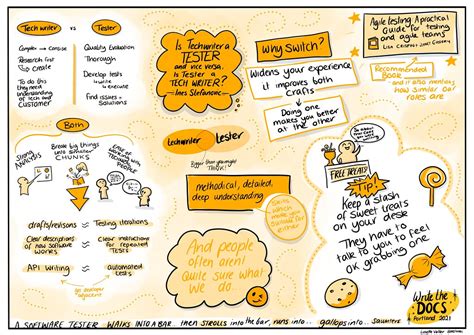 Tech writer vs Tester
Complex → Concise
Research first
→ Create
To do this they need
understanding
of tech and
CUSTOMER
Quality Evaluation
Thorough
Develop tests
→ Execute
Find issues →
Solutions
Is Techwriter a
TESTER
and vice versa,
Is Tester a
TECH WRITER?
Ines Stefanovic
Why Switch?
Widens your experience
it improves both
crafts
Doing one
makes you better
at the other
Agile testing: A practical
Guide for testing
and agile teams
Lisa Crispin & Janet Gregory
Recommended
Book
and it also mentions
how similar our
roles are
Both
Strong
ANALYSIS
Break big things
into smaller
CHUNKS
Ease of
working with
TECHNICAL
PEOPLE
drafts/revisions ≈ Testing iterations
Clear descriptions
of how software
works
Clear instructions
for repeated
tests
API writing ≈ automated
tests
techwriter
tester
Bigger than you might
THINK!
methodical, detailed,
deep understanding
Skills
which make
you suitable
for either
And people
often aren't
Quite sure what
we do.
FREE TREATS
Tip!
Keep a stash
of sweet treats
on your desk
They have to
talk to you to feel
OK grabbing one.
Write the
DOCS
Portland 2021
A SOFTWARE TESTER WALKS INTO A BAR... then STROLLS into the BAR, runs into ... gallops into... saunters